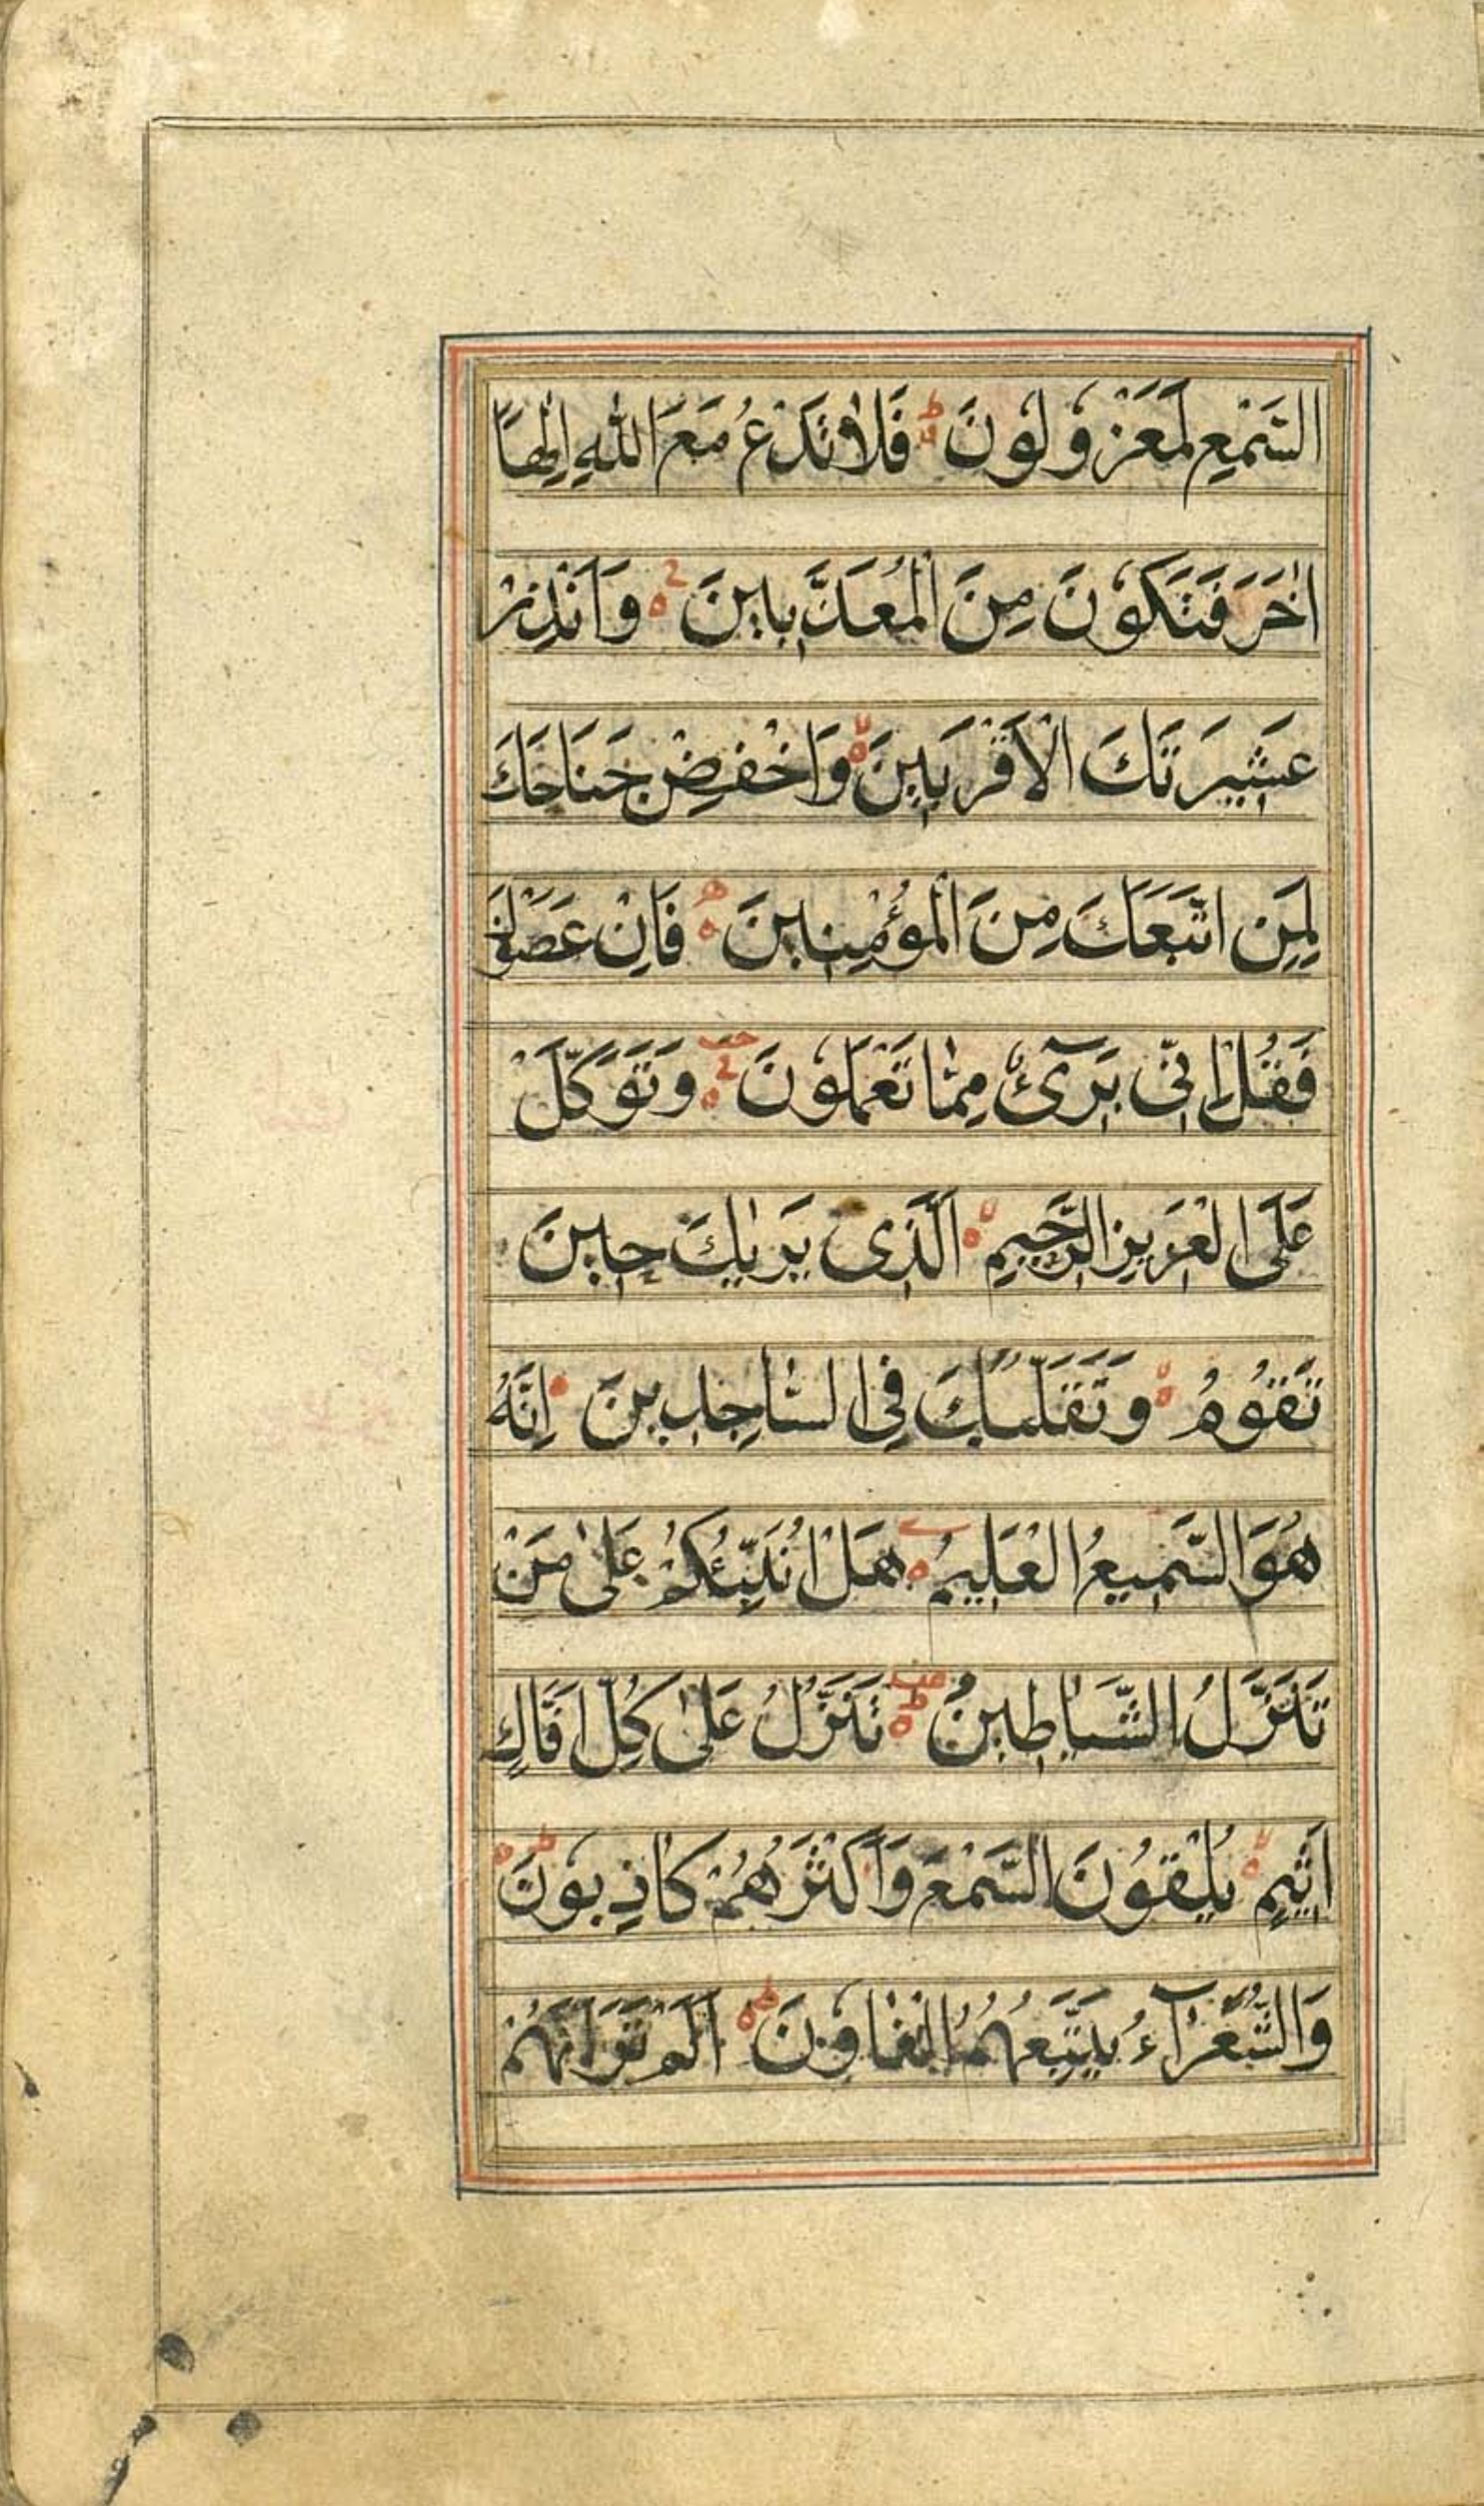 السَّمْعِ لَمَعْزُولُونَ فَلَا تَدْعُ مَعَ اللّٰهِ اِلٰهًا
اٰخَرَ فَتَكُونَ مِنَ الْمُعَذَّبِينَ وَاَنْذِرْ
عَشِيرَتَكَ الْاَقْرَبِينَ وَاخْفِضْ جَنَاحَكَ
لِمَنِ اتَّبَعَكَ مِنَ الْمُؤْمِنِينَ فَاِنْ عَصَوْكَ
فَقُلْ اِنِّى بَرِٓىءٌ مِمَّا تَعْمَلُونَ وَتَوَكَّلْ
عَلَى الْعَزِيزِ الرَّحِيمِ اَلَّذِى يَرٰيكَ حِينَ
تَقُومُ وَتَقَلُّبَكَ فِى السَّاجِدِينَ اِنَّهُ
هُوَ السَّمِيعُ الْعَلِيمُ هَلْ اُنَبِّئُكُمْ عَلٰى مَنْ
تَنَزَّلُ الشَّيَاطِينُ تَنَزَّلُ عَلٰى كُلِّ اَفَّاكٍ
اَثِيمٍ يُلْقُونَ السَّمْعَ وَاَكْثَرُهُمْ كَاذِبُونَ
وَالشُّعَرَٓاءُ يَتَّبِعُهُمُ الْغَاوُنَ اَلَمْ تَرَ اَنَّهُمْ